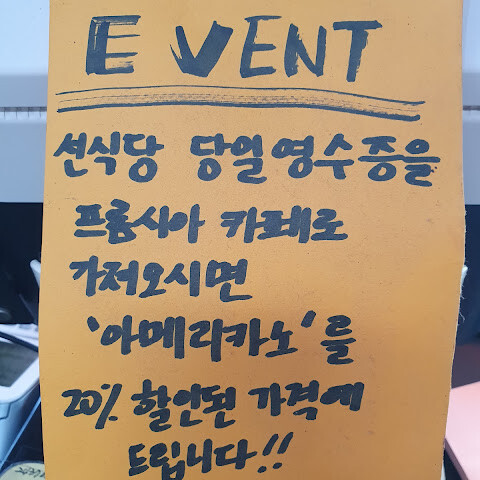 EVENT
선식당 당일영수증을
프롬시아 카페로
가져오시면
'아메리카노'를
20% 할인된 가격에
드립니다!!